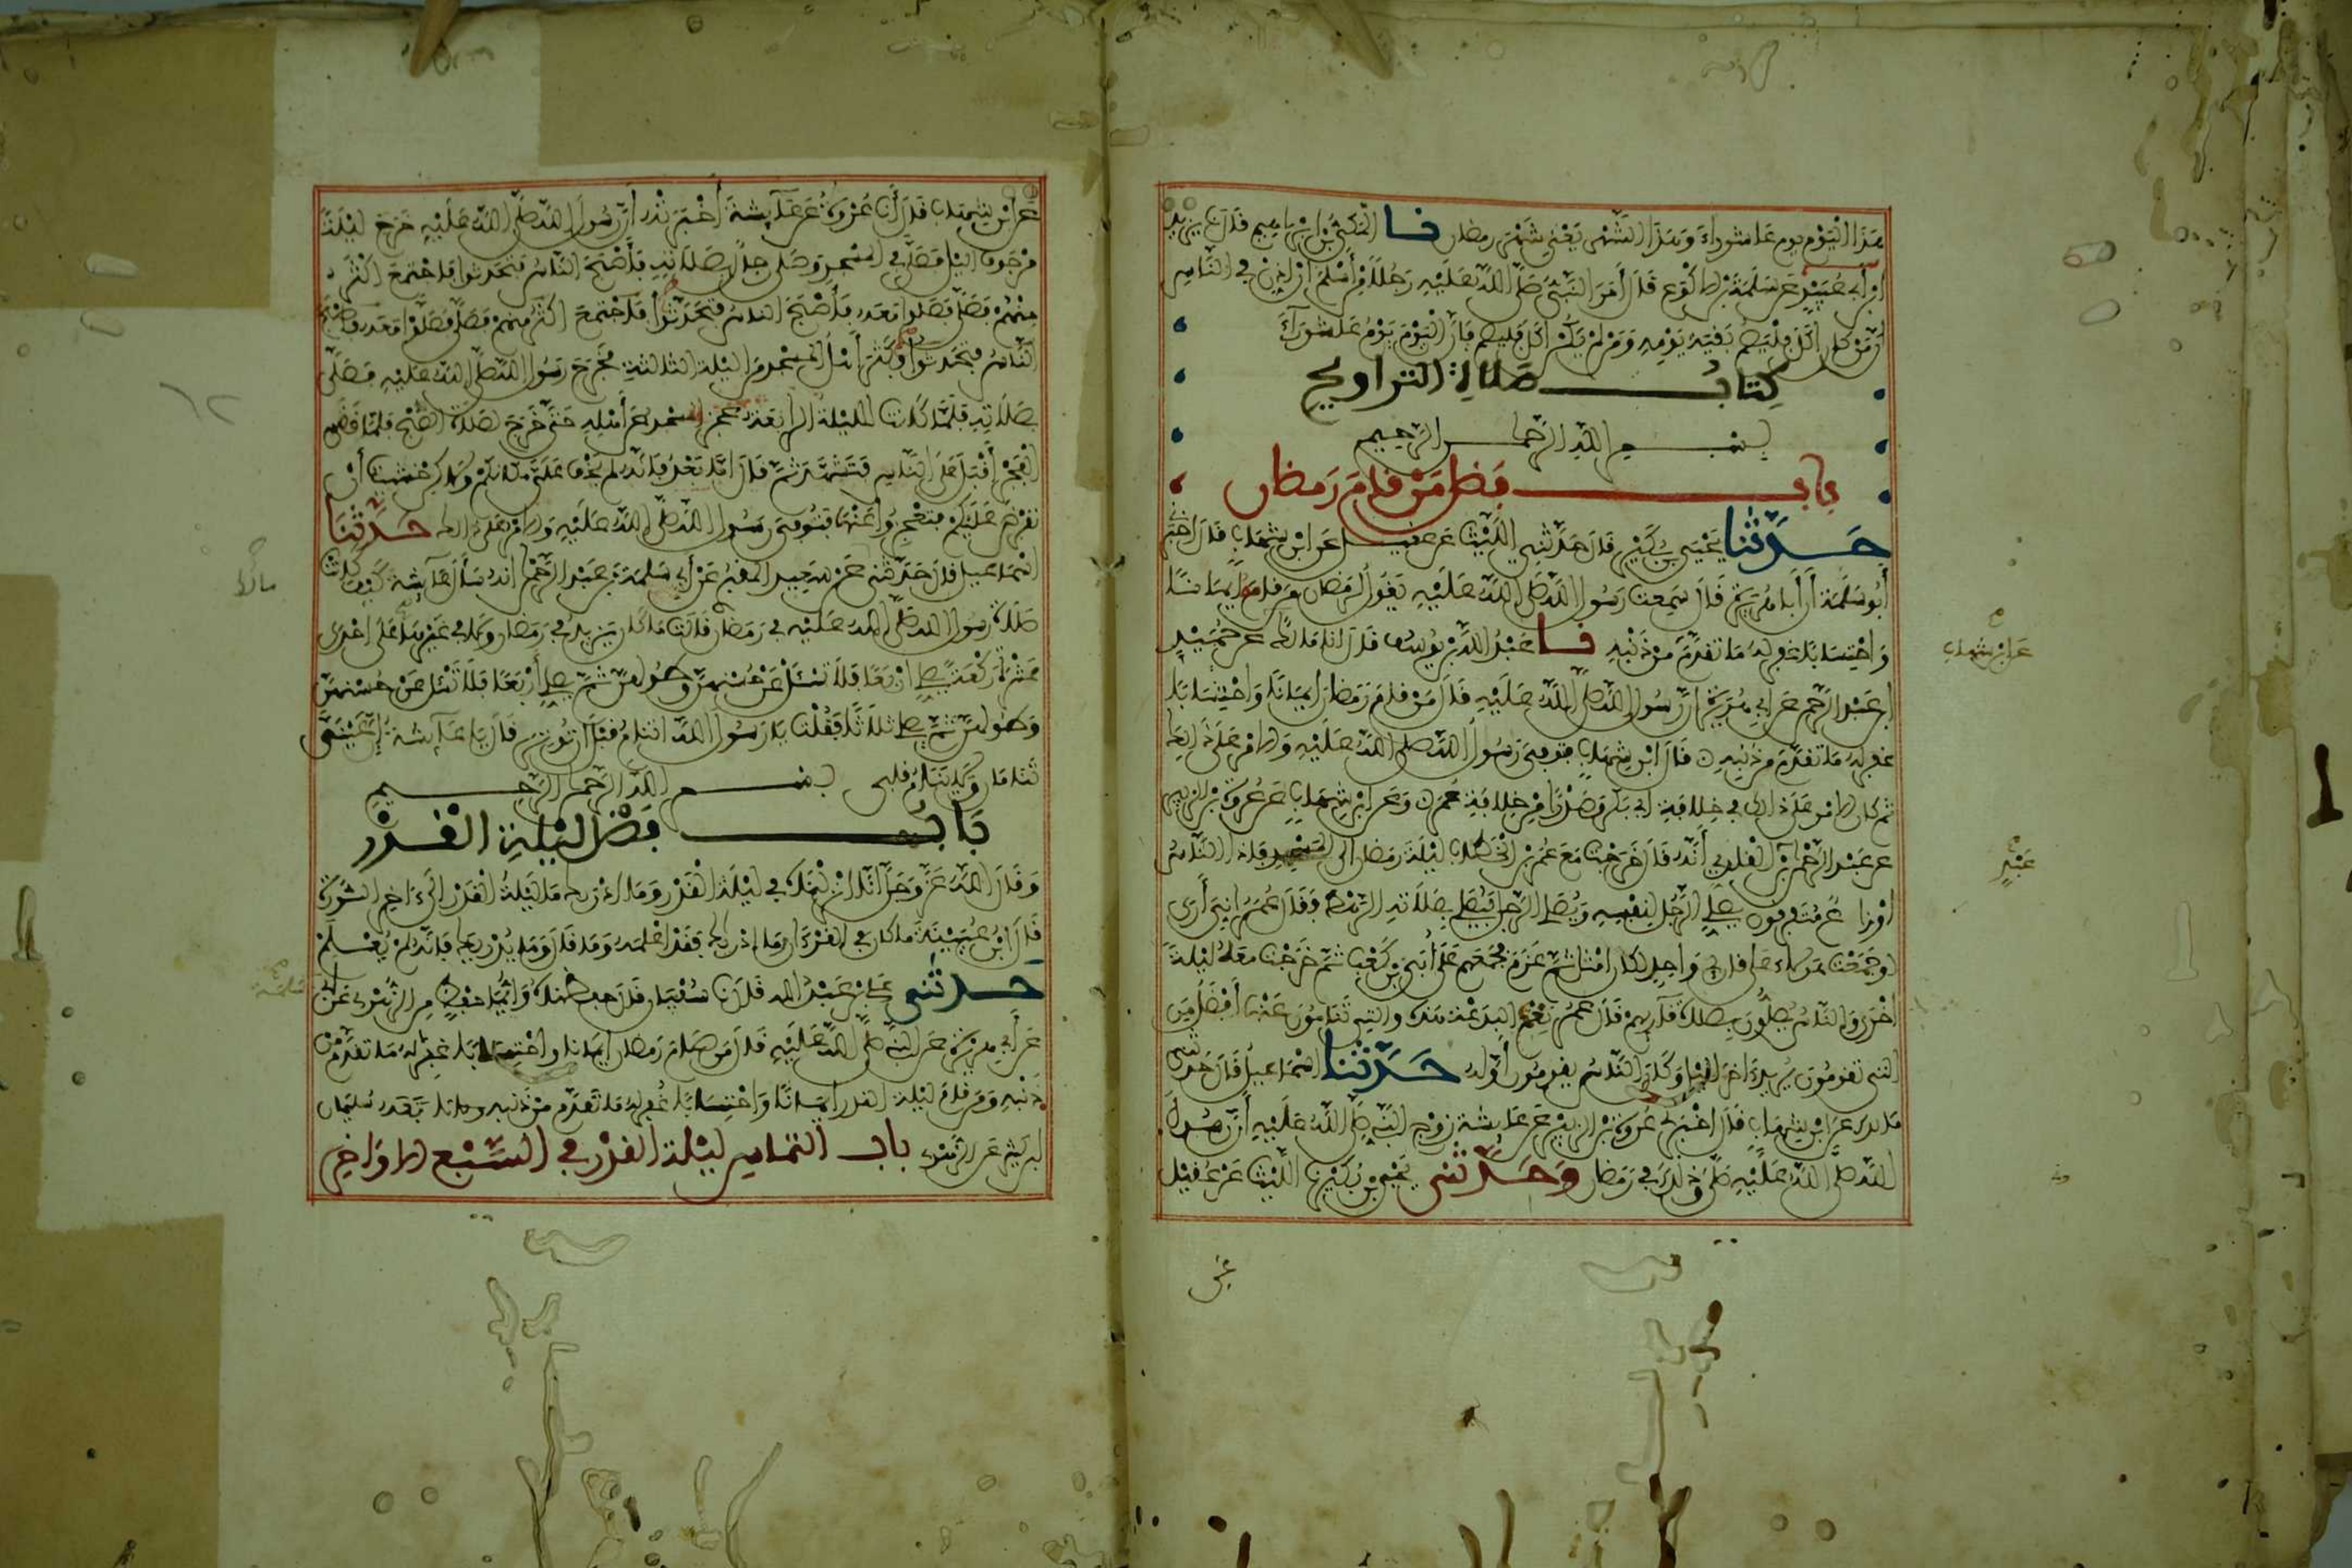 هَذَا الْيَوْمَ يوم عاشوراءَ وَهَذَا الشَّهْر يَعْنِي شَهْرَ رمضان نا الْمَكِّيُّ بْنُ إبراهيم قَالَ نا يزيد
ابن أَبِي عُبَيْدٍ عَن سَلَمَةَ بْنِ الأكْوَعِ قَالَ أَمَرَ النَّبِيُّ صَلَّى اللَّهُ عَلَيْهِ رَجُلًا مِنْ أَسْلَمَ أن أذن في النَّاسِ
أنَّ مَنْ كان أكَلَ فَلْيَصُمْ بَقِيَّةَ يَوْمِهِ وَمَنْ لَمْ يَكُن أكل فليصم فَإنَّ الْيَوْمَ يَوْمُ عَاشُورَاءَ
كِتابُ صلاة التراويح
بسم الله الرحمان الرحيم
باب فضل مَنْ قامَ رَمضان
حَدَّثنا يَحْيَى بن بُكَيْرٍ قَالَ حَدَّثَنِي اللَّيْثُ عَن عقيل عَن ابْنِ شِهَابٍ قَالَ أخْبَرَنِي
أَبُو سَلَمَةَ أَنَّ أَبَا هُرَيْرَةَ قَالَ سَمِعتُ رَسُولَ اللَّهِ صَلَّى اللَّهُ عَلَيْهِ يَقُولُ لِرَمَضَانَ من قامه إيمانا
وَاحْتِسَابًا غفر له مَا تَقَدَّمَ مِنْ ذَنْبِهِ نا عَبْدُ اللَّهِ بْنُ يُوسُف قَالَ انا مَالك عَن حُمَيْدِ
ابن عَبْدِ الرَّحْمن عَن أبي هُرَيْرَةَ أنَّ رَسُولَ اللَّهِ صَلَّى اللَّهُ عَلَيْهِ قَالَ مَنْ قَامَ رَمَضَانَ إيمَانًا وَاحْتِسَابًا
غفر له مَا تَقَدَّمَ مِن ذَنبِهِ قَالَ ابْن شِهَابٍ فتوفي رَسُولُ اللَّهِ صلى اللَّهُ عَلَيْهِ وَالأمْرُ عَلَى ذَلِكَ
ثم كان الأمر عَلَى ذلك في خِلافَةِ أبي بَكْرٍ وَصَدْرًا مِنْ خِلافَةِ عُمَر وَعَنِ ابْنِ شِهَابٍ عَن عُرْوَةَ بْنِ الزبير
عن عَبْدِ الرَّحْمَنِ بْنِ الْقارِي أَنَّهُ قَالَ خَرَجْتُ مَعَ عُمَرَ بْنِ الْخَطَّابِ لَيْلَةَ رَمَضَانَ إلى المَسْجِدِ فإذا النَّاسُ
أوْزاعٌ مُتَفَرِّقُونَ يُصَلِّي الرَّجُلُ لِنَفْسِهِ وَيُصَلِّي الرَّجُلُ فَيُصَلِّي بِصَلَاتِهِ الرَّهْطُ فَقَالَ عُمَرُ إنِّي أَرَى
لو جَمَعْتُ هَؤلاءِ عَلَى قارِئٍ وَاحِدٍ لكان أمْثَلَ ثُمَّ عَزَمَ فَجَمَعَهُم عَلَى أُبَيِّ بْنِ كَعْبٍ ثُمَّ خَرَجْتُ مَعَهُ لَيْلَةً
أخْرَى وَالنَّاسُ يُصَلُّونَ بِصَلاةِ قَارِئِهِمْ قَالَ عُمَرُ نِعْمَ البِدْعَةُ هَذِهِ والتِي تَنَامُونَ عَنْهَا أَفْضَلُ مِنَ
التي تَقومُونَ يُرِيدُ آخِرَ اللَّيْلِ وَكَانَ النَّاسُ يقومُونَ أوَّلَه حَدَّثَنا إسْمَاعِيلُ قَالَ حَدثني
مَالِك عَن ابْنِ شِهَابٍ قَالَ أَخْبَرَنِي عُرْوَةُ بْنُ الزبير عَن عَائشة زَوْجِ النَّبِيِّ صَلَّى اللَّهُ عَلَيْهِ أَنَّ رَسُولَ
اللَّهِ صَلَّى اللَّهُ عَلَيْهِ صَلَّى وَذَلِكَ فِي رَمَضَانَ وَحَدَّثني يَحْيَى بن بُكَيْر نا اللَّيْثُ عَنْ عُقَيْلٍ
عَن ابْنِ شِهَابٍ
عَنِ ابْنِ شِهَابٍ قَالَ أنا عُرْوَةُ عَن عَائِشَةَ أَخْبَرَتْهُ أَنَّ رَسُولَ اللَّهِ صَلَّى اللَّهُ عَلَيْهِ خَرَجَ لَيْلَةً
مِن جَوفِ الليْلِ فَصَلَّى فِي المَسْجِدِ وَصَلَّى رجال بِصَلَاتِهِ فَأَصْبَحَ النَّاسُ فَتَحَدَّثُوا فَاجْتَمَعَ أكْثَرُ
مِنْهُمْ فَصَلَّى فَصَلَّوا مَعَهُ فَأَصْبَحَ النَّاسُ فَتَحَدَّثُوا فَاجْتَمَعَ أكْثَرُ مِنْهُمْ فَصَلَّى فَصَلَّوْا مَعَهُ فَأَصْبَحَ
النَّاسُ فَتَحَدَّثُوا وَكَثُرَ أَهْلُ المَسْجِدِ مِنَ اللَّيْلَةِ الثَّالِثَةِ فَخَرَجَ رَسُولُ اللَّهِ صَلَّى اللَّهُ عَلَيْهِ فَصَلَّى
بِصَلَاتِهِ فَلَمَّا كَانَتِ اللَّيْلَةُ الرَّابِعَةُ عَجَزَ المسْجد عَن أَهْلِهِ حَتَّى خَرَجَ لصَلاةِ الصُّبْحِ فَلَمَّا قَضَى
الْفَجْرَ أَقْبَلَ عَلَى النَّاسِ فَتَشَهَّدَ ثُمَّ قَالَ أَمَّا بَعْدُ فَإِنَّهُ لَمْ يَخْفَ عَلَيَّ مَكَانُكُمْ وَلَكِن خَشِيتُ أَنْ
تُفْرَضَ عَلَيْكُمْ فتَعْجِزُوا عَنْهَا فتُوفي رَسُولُ اللَّهِ صَلَّى اللَّهُ عَلَيْهِ وَالأمر عَلَى ذلك حَدَّثَنَا
إسْمَاعِيلُ قَالَ حَدَّثَنِي عَنْ سَعِيدٍ المَقْبُرِيِّ عَنْ أَبِي سَلَمَةَ بْنِ عَبْدِ الرَّحْمنِ أنه سَأَلَ عَائِشَةَ كَيْفَ كَانَتْ
صَلَاةُ رَسُولِ اللَّهِ صَلَّى اللَّهُ عَلَيْهِ فِي رَمَضَانَ قَالَتْ مَا كَانَ يَزِيدُ فِي رَمَضَانَ وَلَا فِي غَيْرِهَا عَلَى إحْدَى
عَشْرَةَ رَكْعَةً يُصَلِّي أَرْبَعًا فَلَا تَسْئَلْ عَنْ حُسْنِهِنَّ وَطُولِهِنَّ ثُمَّ يُصَلِّي أَرْبَعًا فَلَا تَسْئَل عَنْ حُسْنِهِنَّ
وَطُولِهِنَّ ثُمَّ يُصَلِّي ثَلَاثًا فَقُلْتُ يَا رَسُولَ اللَّهِ أتَنَامُ قَبْلَ أَنْ تُوتِرَ قَالَ يَا عَائِشَةُ إِنَّ عَيْنَيَّ
تَنَامَانِ وَلَا يَنَامُ قلبي بسم الله الرحمن الرحيم
بَابُ فَضْلِ لَيْلَةِ الْقَدْرِ
وَقَالَ اللَّهُ عَزَّ وَجَلَّ إنَّا أنْزَلْنَاهُ فِي لَيْلَةِ الْقَدْرِ وَمَا أَدْرَاكَ مَا لَيْلَةُ الْقَدْرِ إلَى آخِرِ السُّورَةِ
قَالَ ابْنُ عُيَيْنَةَ مَا كَانَ فِي القُرْآنِ وما أدْرَاكَ فَقَدْ أعْلَمَهُ وَمَا قَالَ وَمَا يُدْرِيكَ فَإنَّهُ لَمْ يُعْلِمْ
حَدثني علي بْنُ عَبْدِ الله قَالَ نا سُفْيَانُ قَالَ حفظناهُ وَأَيُّمَا حِفْظٍ مِنَ الزُّهْرِي عَنْ أبي
عَن أَبِي هُرَيْرَةَ عَنِ النَّبِيِّ صَلَّى اللَّهُ عَلَيْهِ قَالَ مَن صَامَ رَمَضَانَ إيمَانًا وَاحْتِسَابًا غُفِرَ لَهُ مَا تَقَدَّمَ مِنْ
ذَنْبِهِ وَمَن قَامَ لَيْلَةَ القدر إيمَانًا وَاحْتِسَابًا غُفِرَ لَهُ مَا تَقَدَّمَ مِنْ ذَنبِهِ تَابَعَهُ سُلَيْمَان
ابن كَثِيرٍ عَنِ الزُّهْرِي باب التماس لَيْلَةِ القَدْرِ فِي السَّبْعِ الأَوَاخِرِ